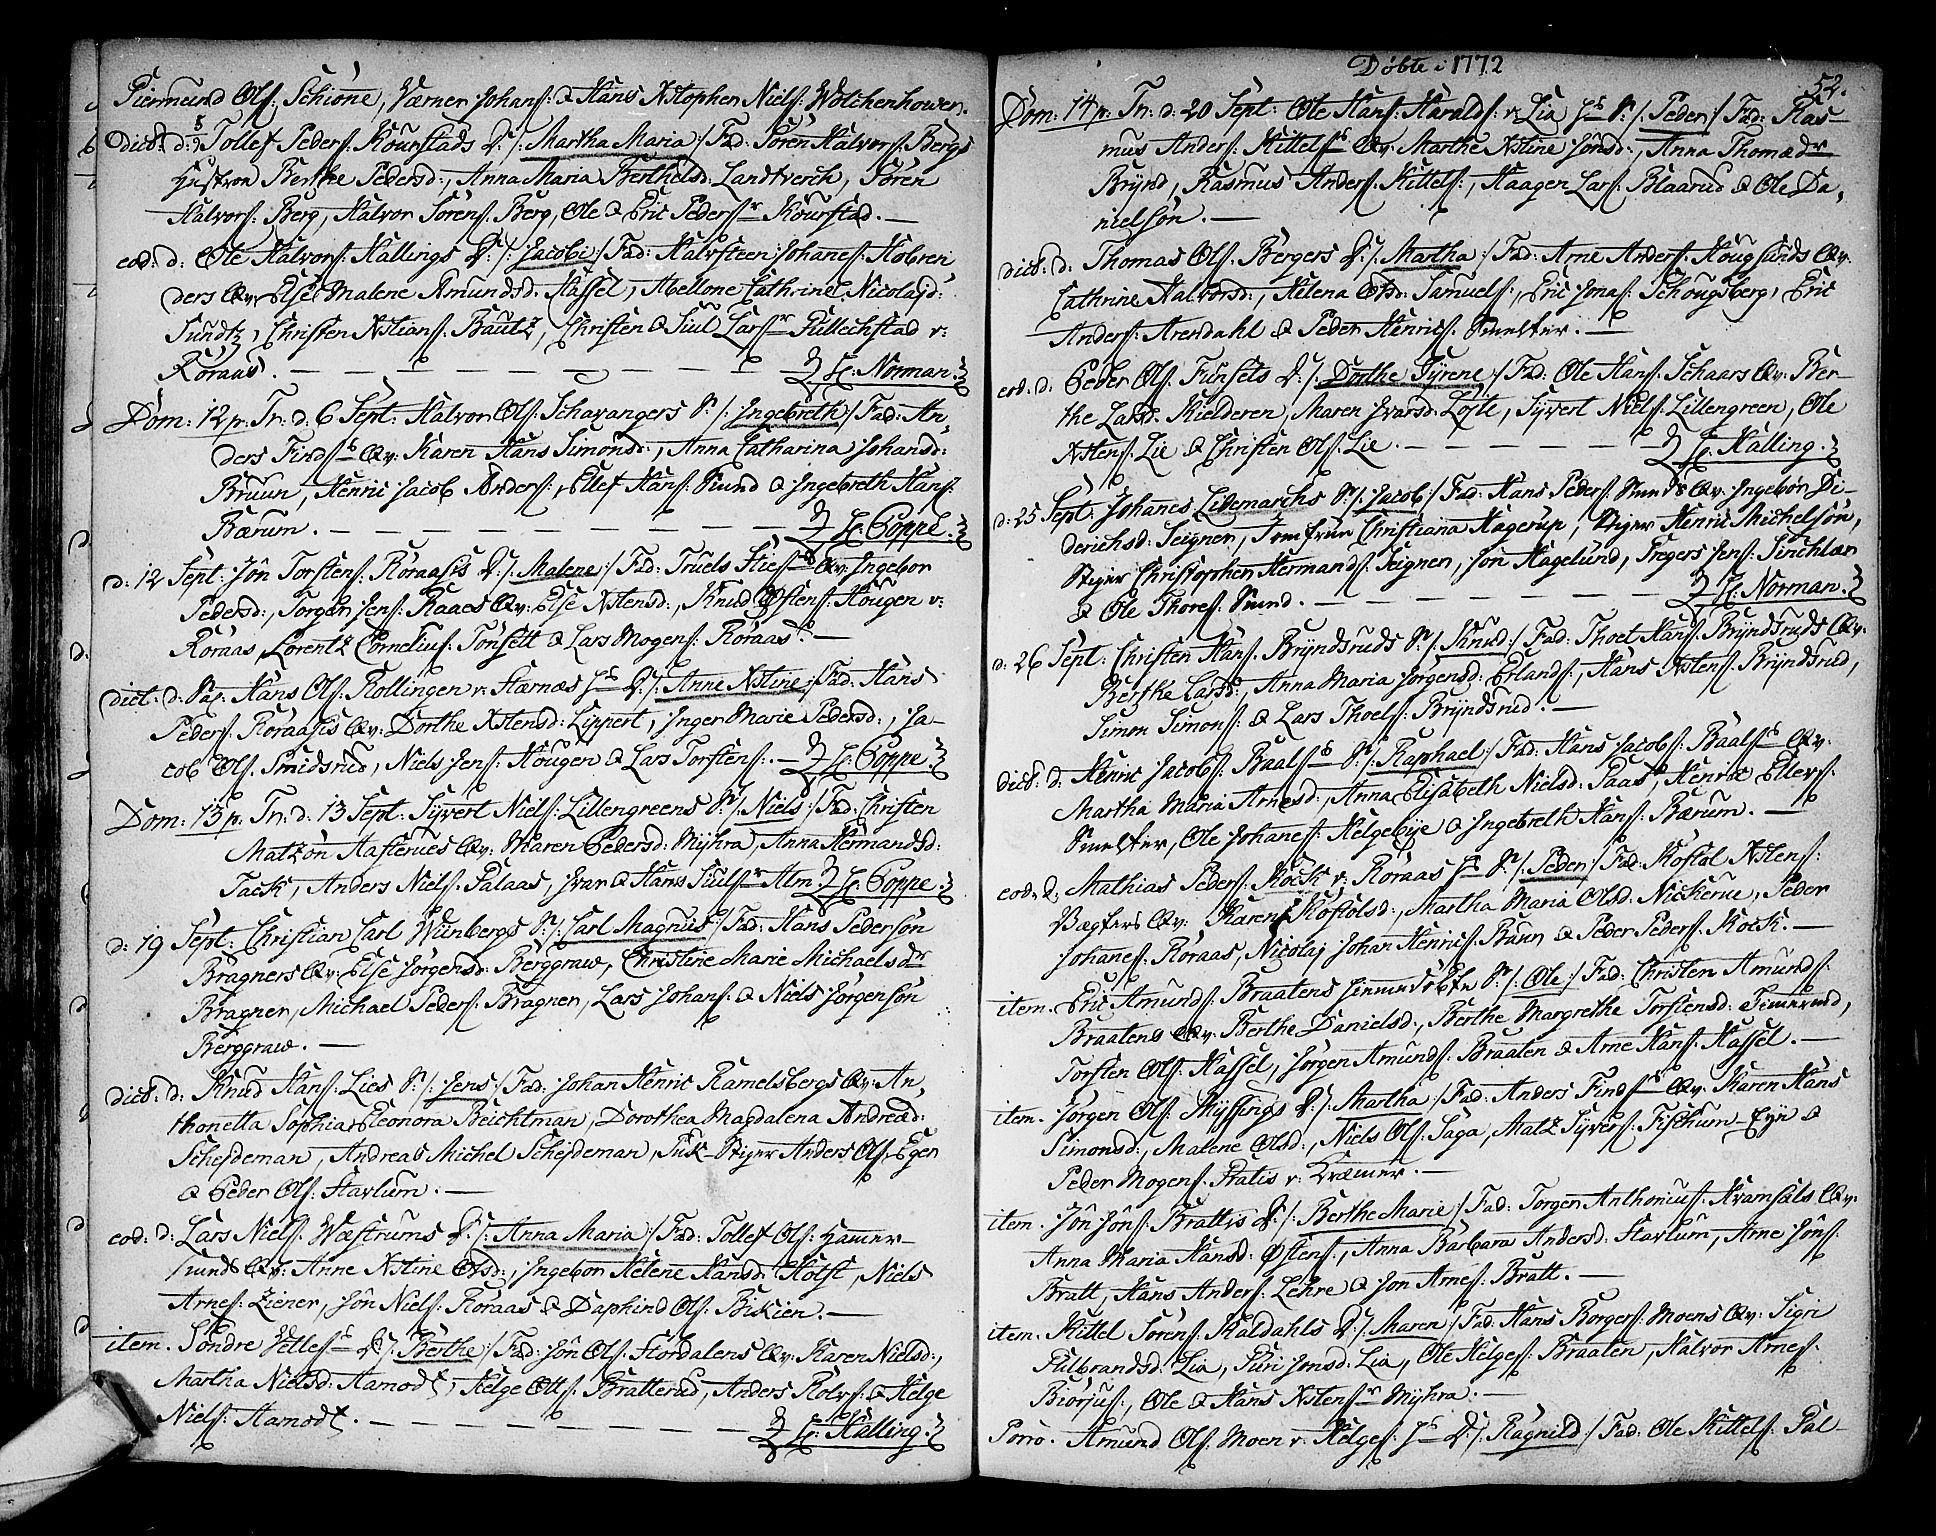 Piermund Ols: Schiöne, Værner Johans: & Hans Xstopher Niels: Wolchenhower.
dict: d: Tollef Peders: Kourstads D: /: Martha Maria :/ Fad: Sören Halvors: Bergs
Hustroe Berthe Pedersd:, Anna Maria Berthelsd: Landtverch, Sören
Halvors: Berg, Halvor Sörens: Berg, Ole & Eric Peders:r Kourstad. —
eod: d: Ole Halvors: Hallings D: /: Jacobi :/ Fad: Halvsteen Johanes: Hobren
ders Qv: Else Malene Amundsd: Hassel, Abellone Cathrine Nicolajd:
Sundtz, Christen Xstians: Bautz, Christen & Siul Lars:r Gullechstad v:
Röraas. — H: Norman.
Dom: 12 p. Tr: d: 6 Sept: Halvor Ols: Schavangers S: /: Ingebreth :/ Fad: An-
ders Finds: Qv: Karen Hans Simonsd:, Anna Catharina Johansd:
Bruun, Henric Jacob Anders:, Ellef Hans: Smed & Ingebreth Hans:
Bærum. — H: Poppe.
d: 12 Sept: Jön Torstens: Röraasis D: /: Malene :/ Fad: Truels Ties: Qv: Ingebor
Pedersd:, Torgen Jens: Raaes Qv: Else Xstensd:, Knud Østens: Hougen v:
Röraas, Lorentz Cornelius: Tönsett & Lars Mogens: Röraas. —
dict: d: Sap: Hans Ols: Rollingen v: Stærnæs H: D: /: Anne Xstine :/ Fad: Hans
Peders: Röraasis Qv: Dorthe Xstensd: Lippert, Inger Marie Pedersd:, Ja-
cob Ols: Smidsrud, Niels Jens: Hougen & Lars Torstens: — H: Poppe.
Dom: 13 p. Tr: d: 13 Sept: Syvert Niels: Lillengreens S: /: Niels :/ Fad: Christen
Matzön Hasterues Qv: Maren Pedersd: Myhra, Anna Hermandsd:
Tack, Anders Niels: Palaas, Ivar & Hans Siuls:r Alm. H: Poppe.
d: 19 Sept: Christian Carl Wünbergs S: /: Carl Magnus :/ Fad: Hans Pedersön
Bragners Qv: Else Jørgensd: Berggraw, Christine Marie Michaelsd:r
Bragner, Michael Peders: Bragner, Lars Johans: & Niels Jørgensön
Berggraw. —
dict: d: Knud Hans: Lies S: /: Jens :/ Fad: Johan Henric Ramelsbergs Qv: An-
thonetta Sophia Eleonora Beichtman, Dorothea Magdalena Andread:
Schejdeman, Andreas Michel Schejdeman, Stiger Anders Ols: Egen
& Peder Ols: Stavlum. —
eod: d: Lars Niels: Wæstrums D: /: Anna Maria :/ Fad: Tollef Ols: Hamer-
sunds Qv: Anne Xstine Olsd:, Ingebor Helene Hansd: Holst, Niels
Arnes: Ziener, Jön Niels: Röraas & Daphind Ols: Bikien. —
item. Söndre D: /: Berthe :/ Fad: Jön Ols: Stordalens Qv: Karen Nielsd:,
Martha Nielsd: Aamodt, Helge Ols: Bratterud, Anders Rolvs: & Helge
Niels: Aamodt. — H: Halling.
Döbte i 1772
52.
Dom: 14 p. Tr: d: 20 Sept: Ole Hans: Haralds: v: Lia H: S: /: Peder :/ Fad: Ras-
mus Anders: Kittels: Qv: Marthe Xstine Jönsd:, Anna Thomæd:r
Brynd, Rasmus Anders: Kittels:, Haagen Lars: Blaarud & Ole Da-
nielsön. —
dict: d: Thomas Ols: Bergers D: /: Martha :/ Fad: Arne Anders: Hougsunds Qv:
Cathrine Halvorsd:, Helena Olsd: Samuels:, Eric Jonas: Schougsberg, Eric
Anders: Arendahl & Peder Henrics: Smelter. —
eod: d: Peder Ols: Funsets D: /: Dorthe Syrene :/ Fad: Ole Hans: Schaars Qv: Ber-
the Larsd: Kielderen, Maren Ivarsd: Löjte, Syvert Niels: Lillengreen, Ole
Xstens: Lie & Christen Ols: Lie. — H: Halling.
d: 25 Sept: Johanes Lidemarchs S: /: Jacob :/ Fad: Hans Peders: Smeds Qv: Ingebor Di-
derichsd: Seigner, Jomfrue Christiana Hagerup, Stiger Henric Michelsön,
Stiger Christopher Hermands: Seigner, Jön Hagelund, Tregers Jens: Sinchlær
& Ole Thores: Smed. — H: Norman.
d: 26 Sept: Christen Hans: Bryndsruds S: /: Knud :/ Fad: Thoet Hans: Bryndsruds Qv:
Berthe Larsd:, Anna Maria Jørgensd: Erlands:, Hans Xstens: Bryndsrud,
Simon Simons: & Lars Thoels: Bryndsrud. —
dict: d: Henric Jacobs: Baals: S: /: Raphael :/ Fad: Hans Jacobs: Baals: Qv:
Martha Maria Arnesd:, Anna Elisabeth Nielsd: Paas, Henric Ellevs:
Smelter, Ole Johanes: Helgebye & Ingebreth Hans: Bærum. —
eod: d: Mathias Peders: Kock v: Röraas H: S: /: Peder :/ Fad: Kostol Xstens:
Vægters Qv: Karen Kostolsd:, Martha Maria Olsd: Nickerue, Peder
Johanes: Röraas, Nicolaj Johan Henrics: Bann & Peder Peders: Kock. —
item. Eric Amunds: Braatens hiemmedöbte S: /: Ole :/ Fad: Christen Amunds:
Braatens Qv: Berthe Danielsd:, Berthe Margrethe Torstensd: Simerud,
Torsten Ols: Hassel, Jørgen Amunds: Braaten & Arne Hans: Hassel. —
item. Jørgen Ols: Myssings D: /: Martha :/ Fad: Anders Finds: Qv: Karen Hans
Simonsd:, Malene Olsd:, Niels Ols: Saga, Matz Syvers: Fischum-Eyn &
Peder Mogens: Pratis v: Kræmer. —
item. Jön Jöns: Brattis D: /: Berthe Marie :/ Fad: Torger Anthonius: Kramsals Qv:
Anna Maria Hansd: Østens:, Anna Barbara Andersd: Stavlum, Arne Jöns:
Bratt, Hans Anders: Lehre & Jon Arnes: Bratt. —
item. Kittel Sörens: Kaldahls D: /: Maren :/ Fad: Hans Borgers: Moens Qv: Sigri
Gulbrandsd: Lia, Guri Jonsd: Lia, Ole Helges: Braaten, Halvor Arnes:
Biörjus:, Ole & Hans Xstens:r Myhra. —
Porro. Amund Ols: Moen v: Helges: H: D: /: Ragnild :/ Fad: Ole Kittels: Pal-